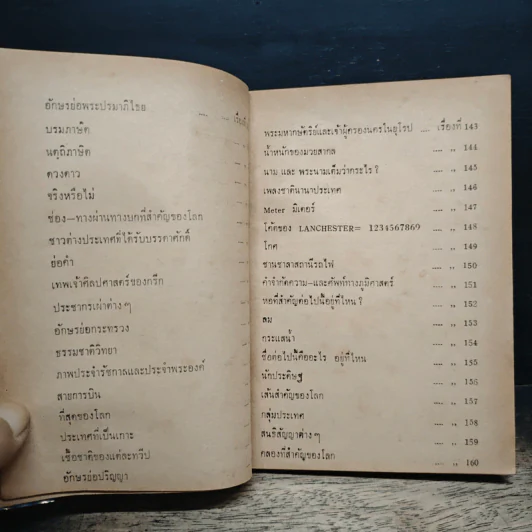 อักษรย่อพระปรมาภิไธย .... .... เรื่องที่
บรมภาษิต
นตุถิภาษิต
ดวงดาว
จริงหรือไม่
ช่อง—ทางผ่านทางบกที่สำคัญของโลก
ชาวต่างประเทศที่ได้รับบรรดาศักดิ์
ย่อคำ
เทพเจ้าศิลปศาสตร์ของกรีก
ประชากรเผ่าต่าง ๆ
อักษรย่อกระทรวง
ธรรมชาติวิทยา
ภาพประจำรัชกาลและประจำพระองค์
สายการบิน
ที่สุดของโลก
ประเทศที่เป็นเกาะ
เชื้อชาติของแต่ละทวีป
อักษรย่อปริญญา
พระมหากษัตริย์และเจ้าผู้ครองนครในยุโรป .... เรื่องที่ 143
น้ำหนักของมวยสากล .... ,, 144
นาม และ พระนามเต็มว่ากระไร ? .... ,, 145
เพลงชาตินานาประเทศ .... ,, 146
Meter มิเตอร์ .... ,, 147
โค๊ดของ LANCHESTER= 1234567869 .... ,, 148
โกศ .... ,, 149
ชานชาลาสถานีรถไฟ .... ,, 150
คำจำกัดความ—และศัพท์ทางภูมิศาสตร์ .... ,, 151
หอที่สำคัญต่อไปนี้อยู่ที่ไหน ? .... ,, 152
ลม .... ,, 153
กระแสน้ำ .... ,, 154
ชื่อต่อไปนี้คืออะไร อยู่ที่ไหน .... ,, 155
นักประดิษฐ .... ,, 156
เส้นสำคัญของโลก .... ,, 157
กลุ่มประเทศ .... ,, 158
สนธิสัญญาต่าง ๆ .... ,, 159
คลองที่สำคัญของโลก .... ,, 160